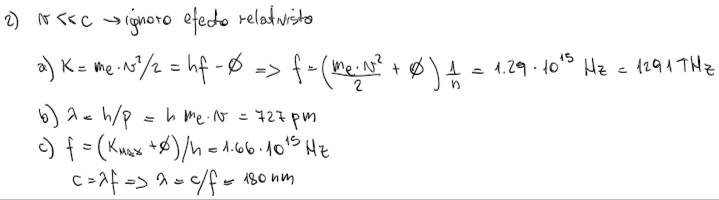 2) v << c → ignoro efecto relativista
a) K = me·v²/2 = hf - ∅ => f = (me·v²/2 + ∅) 1/h = 1.29·10¹⁵ Hz = 1291 THz
b) λ = h/p = h me·v = 727 pm
c) f = (Kmax + ∅)/h = 1.66·10¹⁵ Hz
c = λf => λ = c/f = 180 nm